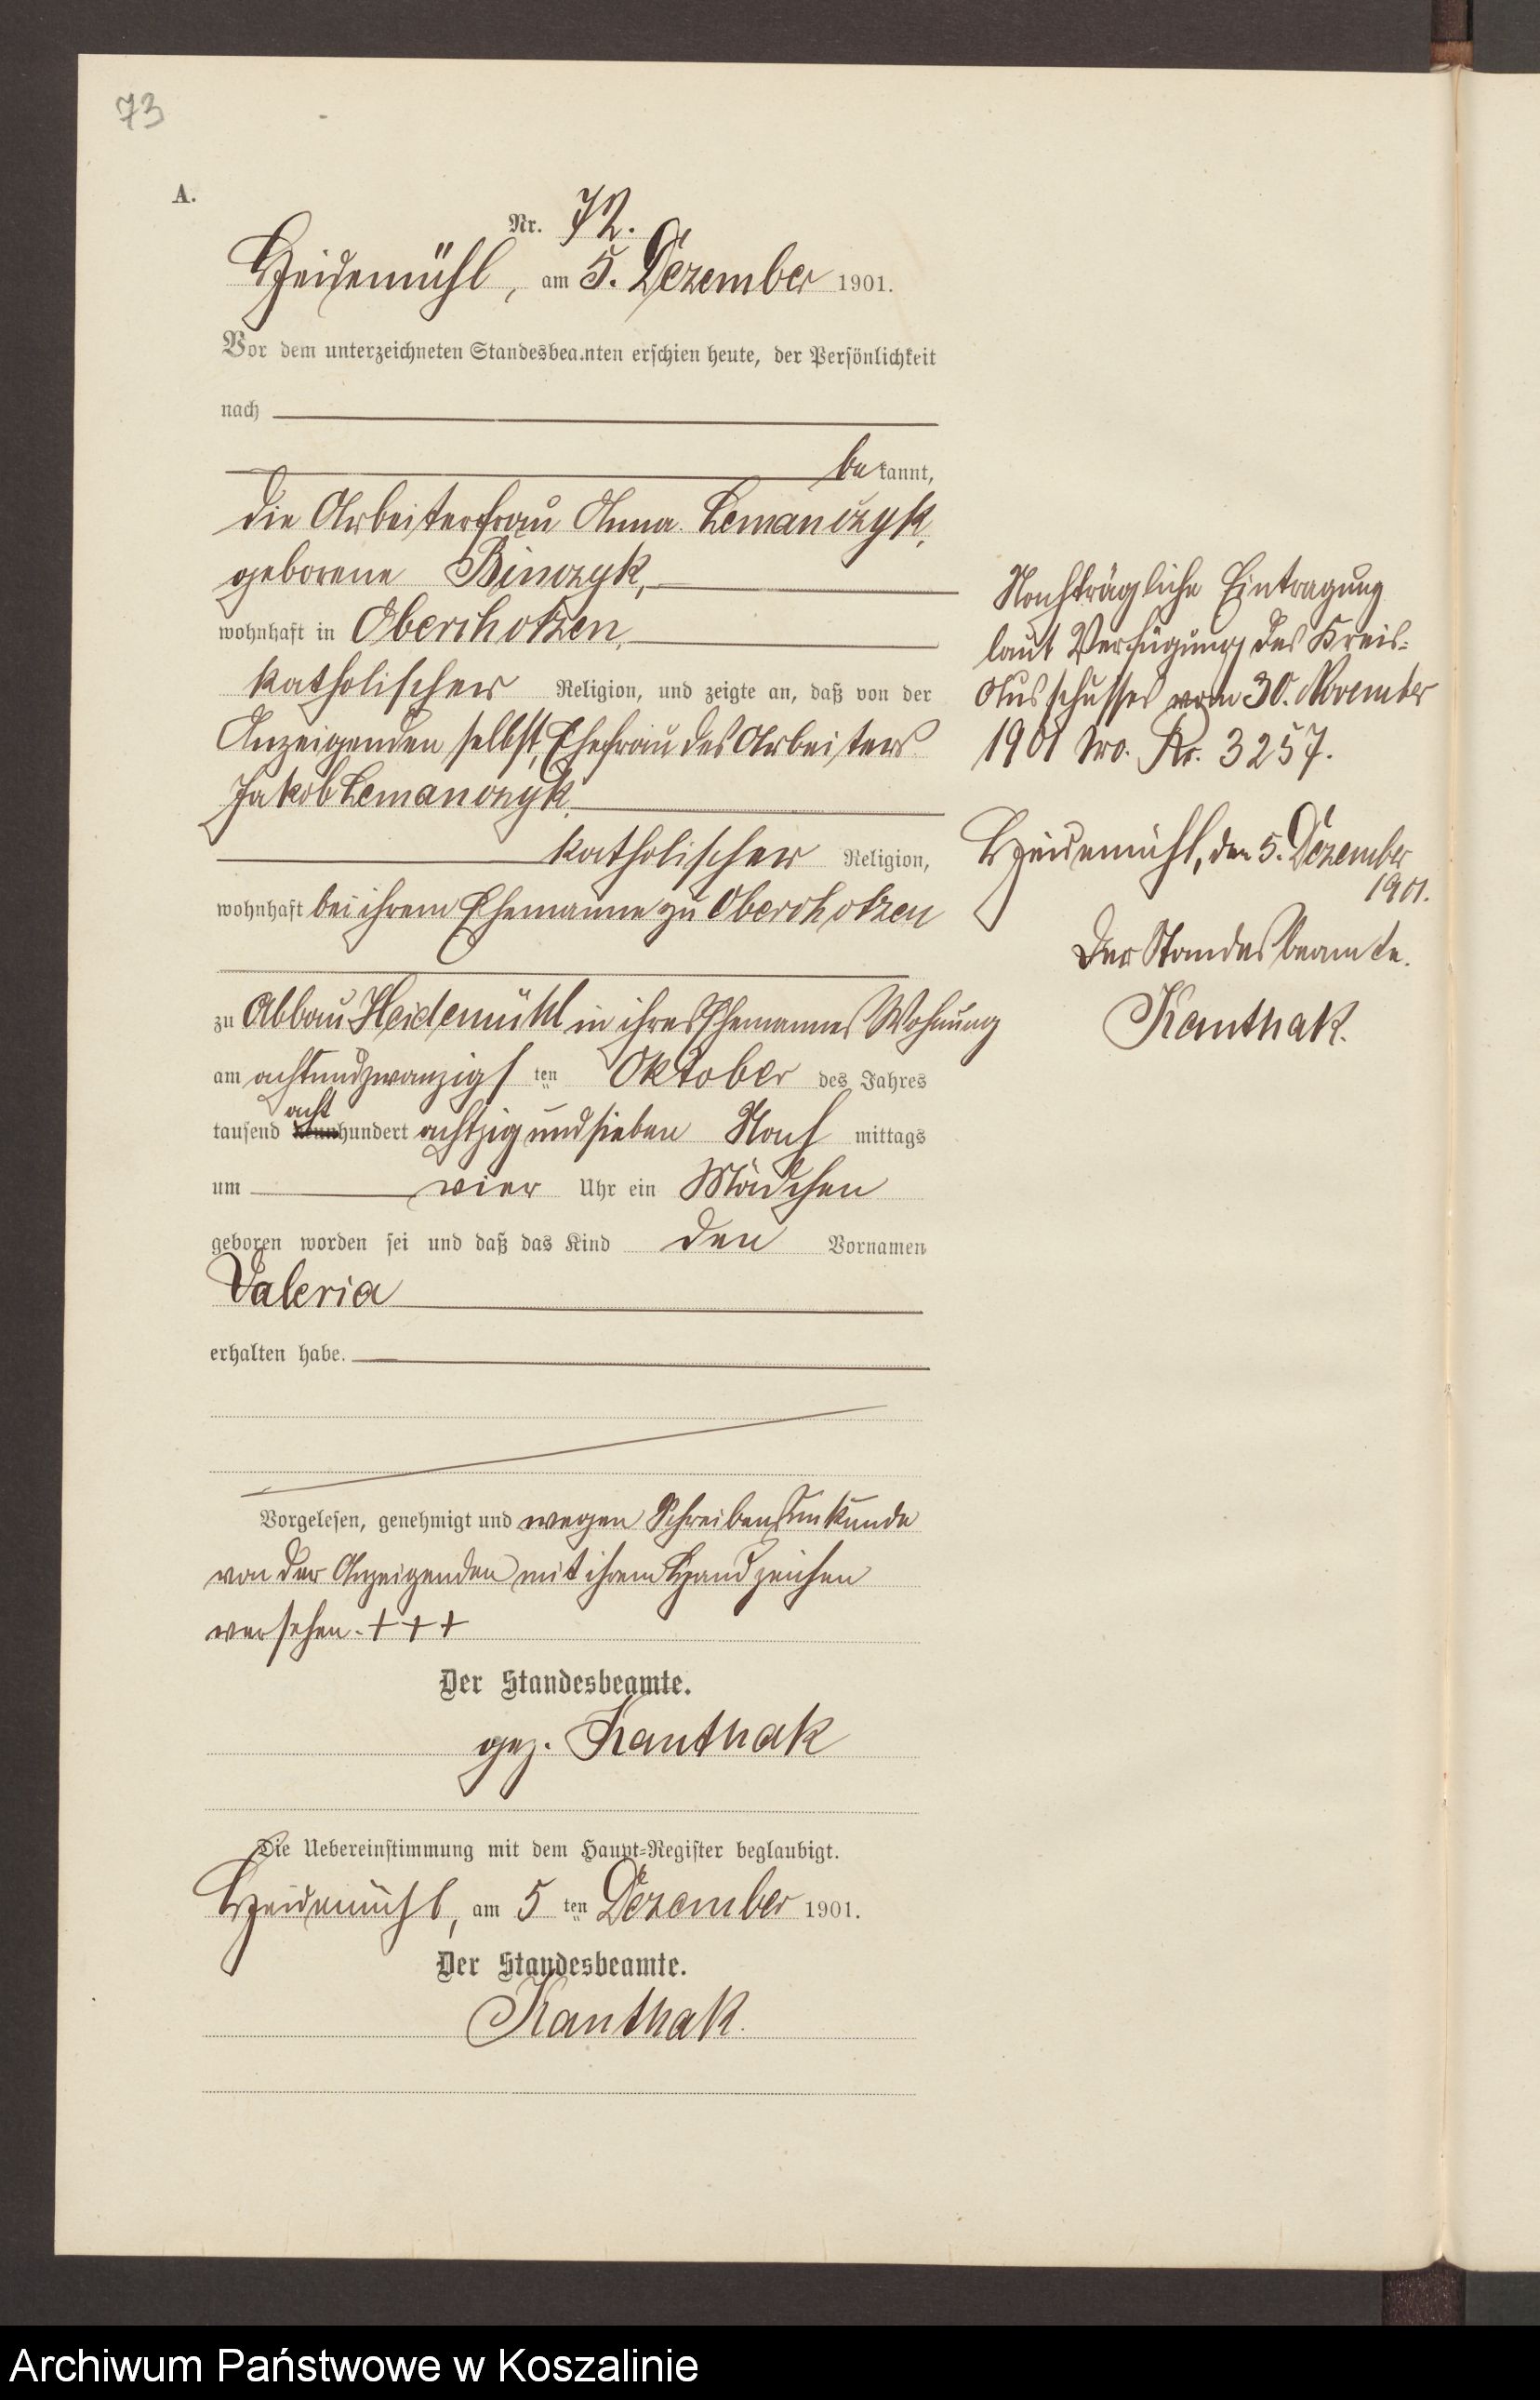 73
A.
Nr. 72.
Heidemühl, am 5. Dezember 1901.
Vor dem unterzeichneten Standesbeamten erschien heute, der Persönlichkeit
nach
bekannt,
die Arbeiterfrau Anna Lemanczyk,
geborene Binczyk,
wohnhaft in Oberchotzen,
katholischer Religion, und zeigte an, daß von der
Anzeigenden selbst, Ehefrau des Arbeiters
Jakob Lemanczyk,
katholischer Religion,
wohnhaft bei ihrem Ehemanne zu Oberchotzen
zu Abbau Heidemühl in ihres Ehemannes Wohnung
am achtundzwanzigsten Oktober des Jahres
acht
tausend neunhundert achtzig und sieben Nachmittags
um vier Uhr ein Mädchen
geboren worden sei und daß das Kind den Vornamen
Valeria
erhalten habe.
Vorgelesen, genehmigt und wegen Schreibensunkunde
von der Anzeigenden mit ihrem Handzeichen
versehen. + + +
Der Standesbeamte.
gez. Kanthak
Die Uebereinstimmung mit dem Haupt-Register beglaubigt.
Heidemühl, am 5ten Dezember 1901.
Der Standesbeamte.
Kanthak.
Nachträgliche Eintragung
laut Verfügung des Kreis-
Ausschusses vom 30. November
1901 No. Kr. 3257.
Heidemühl, den 5. Dezember
1901.
Der Standesbeamte.
Kanthak.
Archiwum Państwowe w Koszalinie